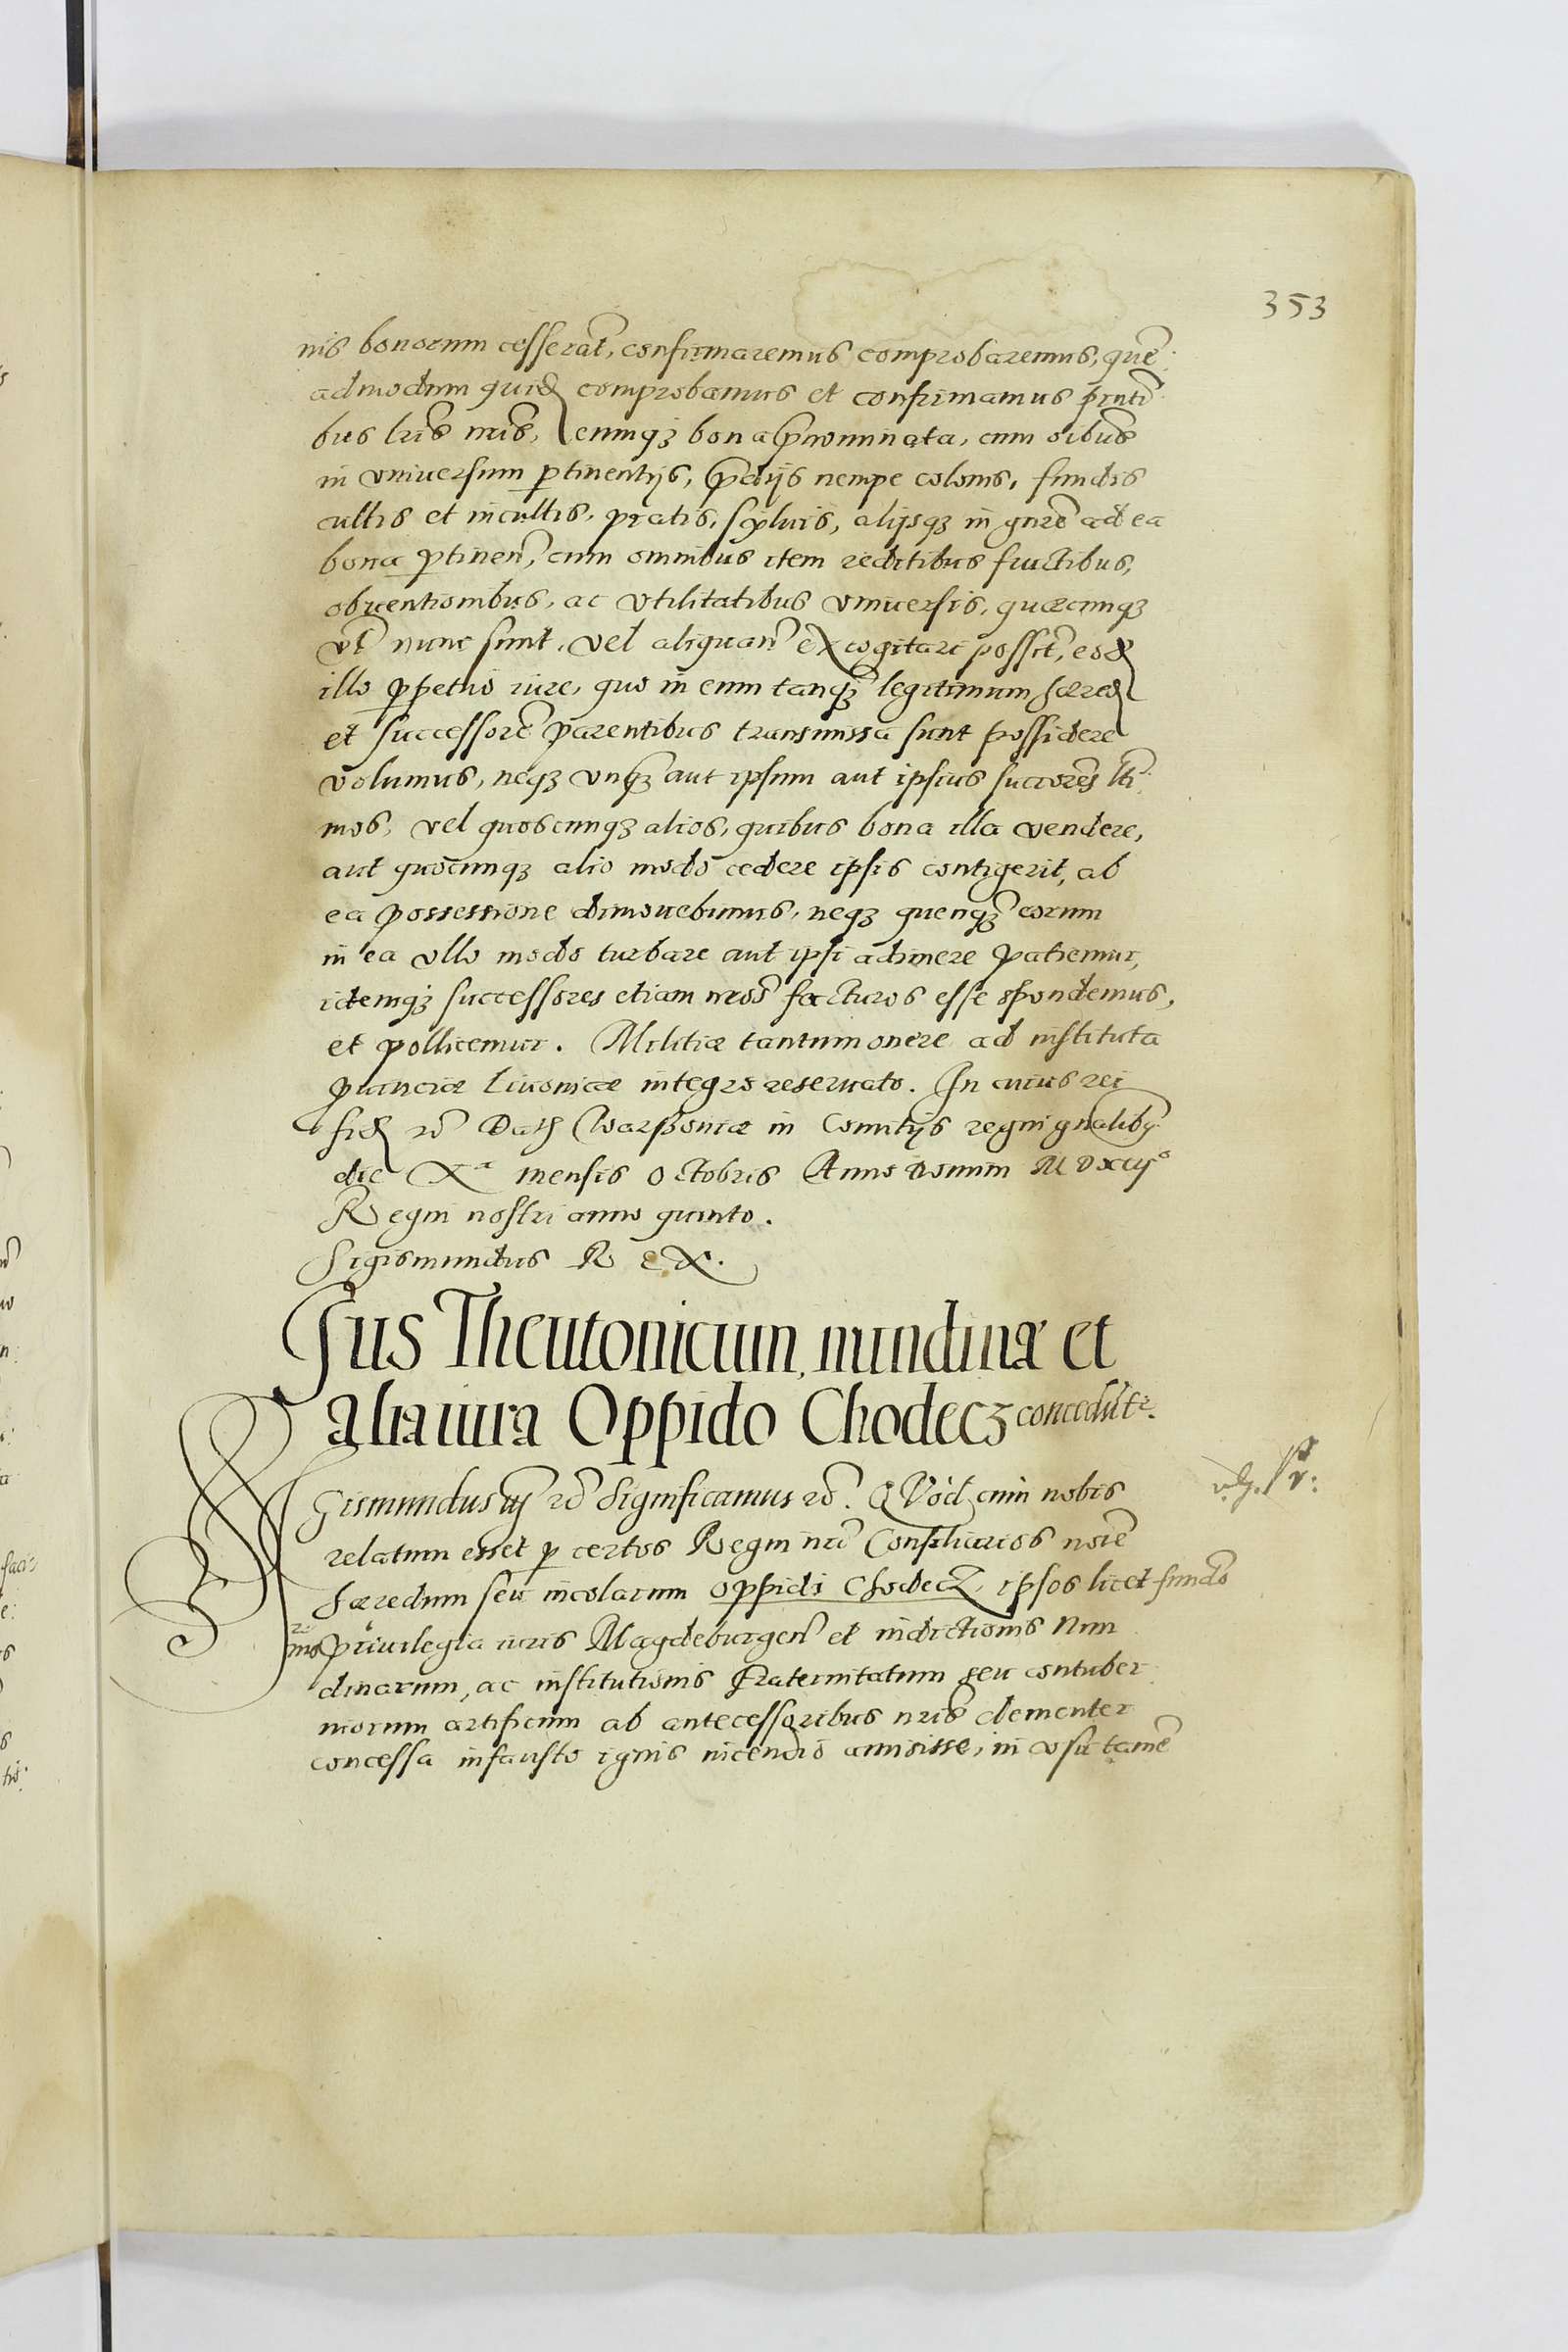 353
nis bonorum cesserat, confirmaremus comprobaremus, quē
admodum quidē comprobamus et confirmamus pṅti
bus lr̄is nr̄is, eumq₃ bona p̄nominata, cum oībus
in vniuersum ꝑtinentijs, p̄dijs nempe colonis, fundis
cultis et incultis, pratis, sylvis, alijsq₃ in gn̄re ad ea
bona ꝑtinen̄, cum omnibus item reditibus fructibus,
obuentionibus, ac vtilitatibus vniuersis, quæcunq₃
vt nunc sunt, vel aliquan̄ excogitari possit, eodē
illo ꝑpetuo iure, quo in eum tanq₃ legitimum hæredē
et successorē parentibus transmissa sunt possidere
volumus, neq₃ vnq₃ aut ipsum aut ipsius succorēs lti
mos, vel quoscunq₃ alios, quibus bona illa vendere,
aut quocunq₃ alio modo cedere ipsis contigerit, ab
ea possessione dimouebimus, neq₃ quenq₃ eorum
in ea vllo modo turbare aut ipsi adimere patiemur,
idemq₃ successores etiam nr̄os facturos esse spondemus,
et pollicemur. Militiæ tantum onere ad instituta
prouinciæ Liuonicæ integro reseruato. In cuius rei
fidē rc̄ Dat Warssouiæ in Comitijs regni gn̄alibꝫ
die Xᵃ mensis Octobris Anno domini MDxcijᵒ
Regni nostri anno quinto.
Sigismundus Rex.
Jus Theutonicum, nundinæ et
alia iura Oppido Chodecz concedūtr.
Sigismundus iij rc̄ Significamus rc̄. Quod cum nobis
relatum esset ꝑ certos Regni nr̄i Consiliarios noīe
hæredum seu incolarum oppidi Chodecz, ipsos licet fundo
priuilegia iuris Magdeburgen̄ et indictionis Nun
dinarum, ac institutionis Fraternitatum seu contuber
niorum artificum ab antecessoribus nr̄is clementer
concessa infausto ignis incendio amisisse, in vsu tamē